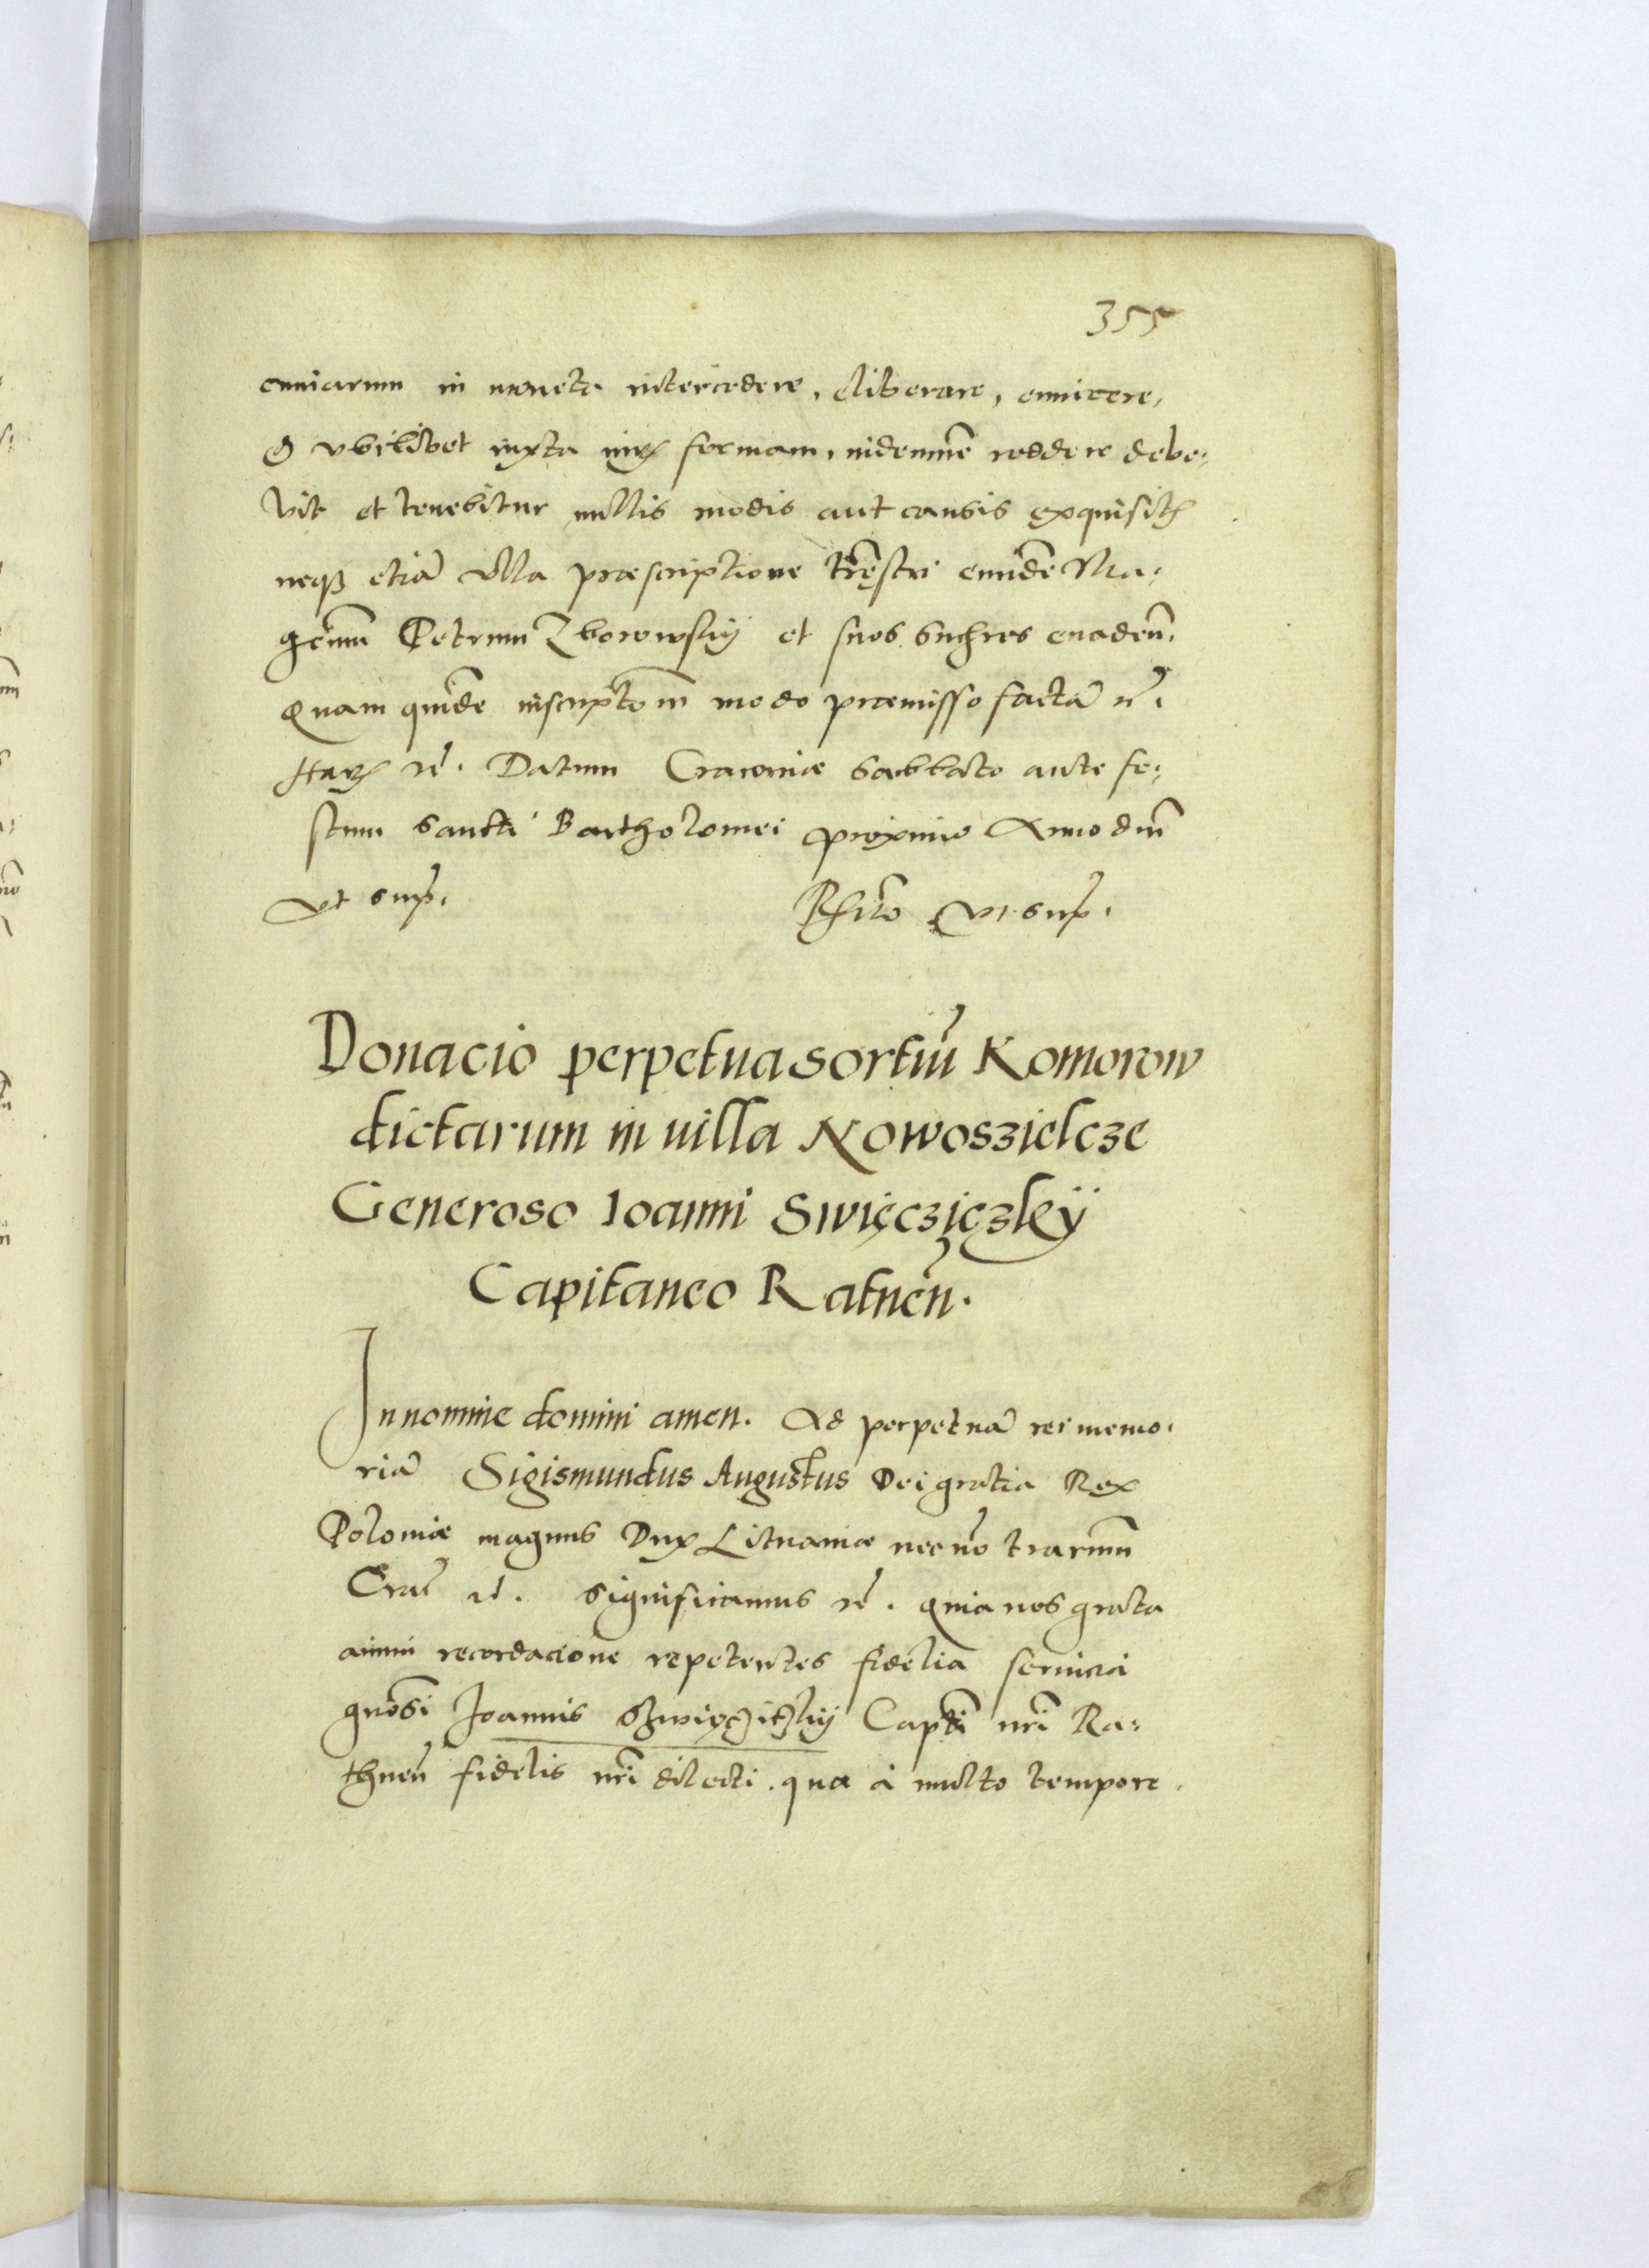 355
cuniarum in moneta intercedere, eliberare, euincere,
et vbilibet iuxta iuris formam, indemnē reddere debe:
bit et tenebitur nullis modis aut causis exquisitis
neq3 etiā vlla præscriptione trēstri eundē Ma:
gcum̄ Petrum Zborowskÿ et suos Suc̄hres euaden̄.
Quam quidē inscriptōm modo præmisso factā rc̄.
Harz rc̄. Datum Cracouiæ Sabbato ante fe:
stum Sancti Bartholomei proximo Anno dni̅
Vt sup̄.
R̄latō Vt sup̄.
Donacio perpetua sortiū Komorow
dictarum in villa Nowoszielcze
Generoso Ioanni Swięcziçzkÿ
Capitaneo Ratnen̄.
In nomine domini amen. Ad perpetuā rei memo:
riā Sigismundus Augustus Dei gratia Rex
Poloniæ magnus Dux Lituaniæ necnō trarum̄
Crac̄ rc̄. Significamus rc̄. quia nos grata
animi recordacione repetentes fidelia seruicia
gnōsi Joannis Szwięczitzkÿ Captī nrī Ra:
thnen̄ fidelis nrī dilecti. qua à multo tempore